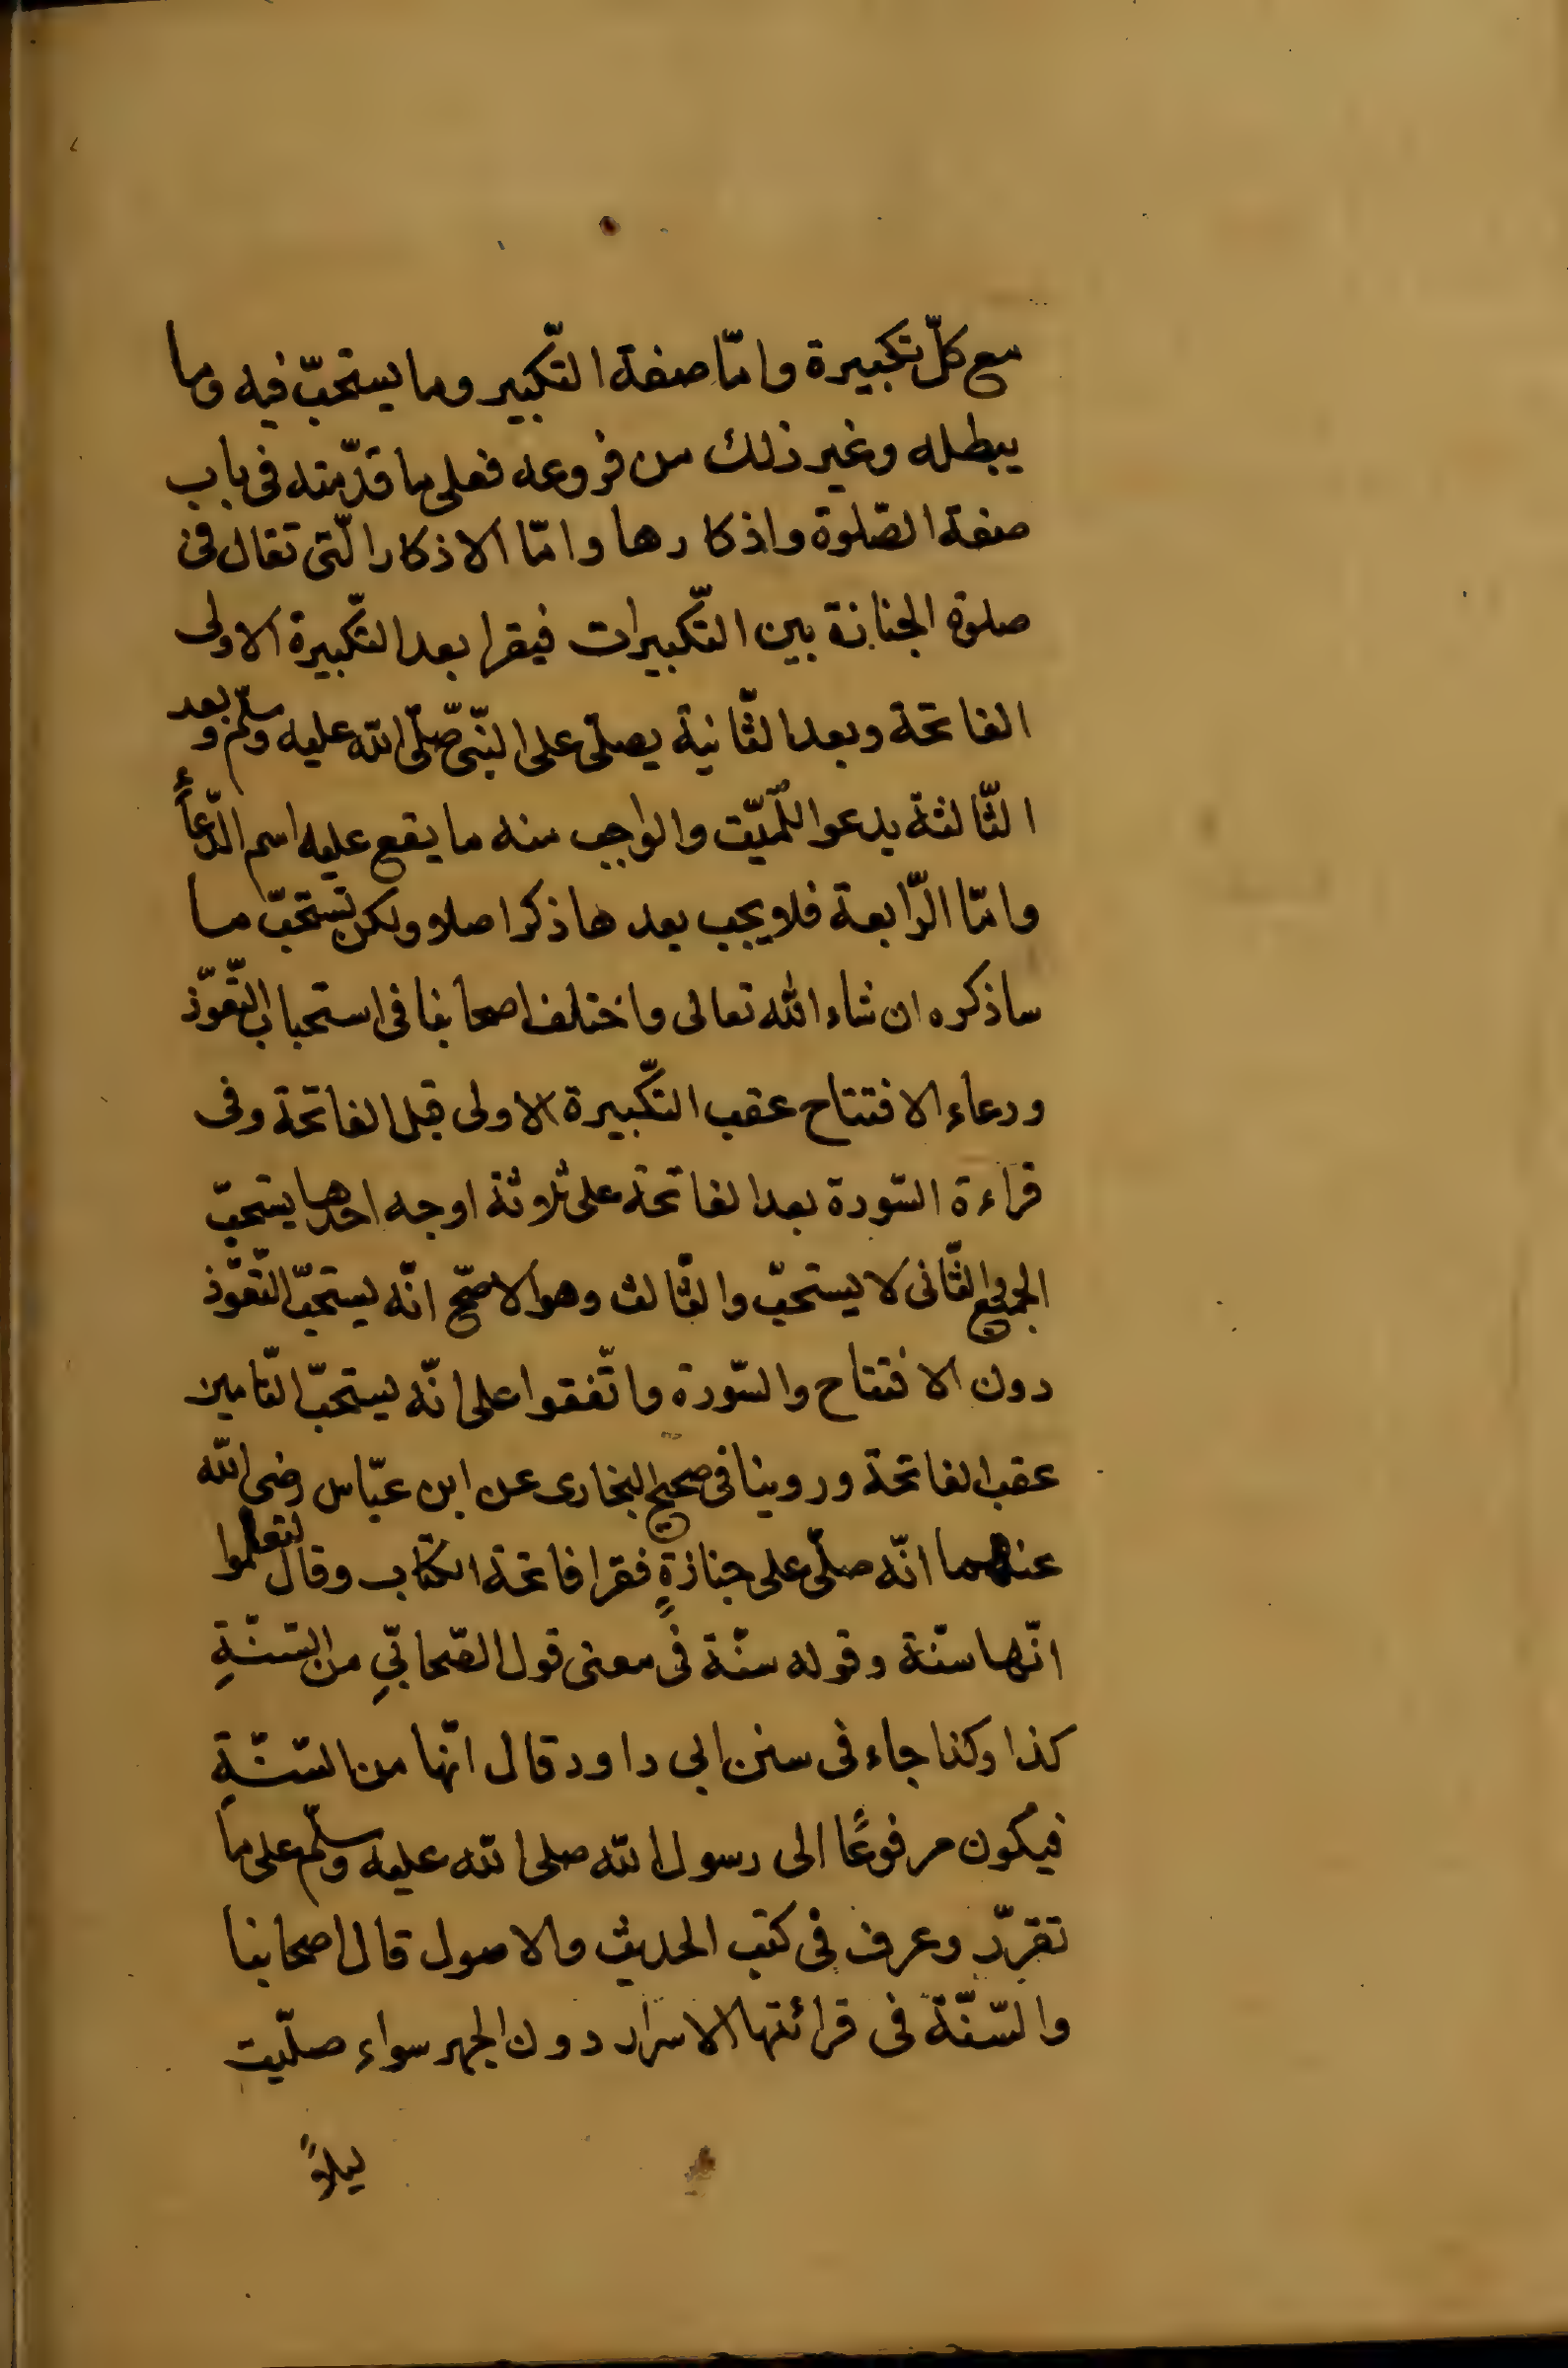 مع كلّ تكبيرة وامّا صفة التّكبير وما يستحبّ فيه وما
يبطله وغير ذلك من فروعه فعلى ما قدّمته فى باب
صفة الصّلوة واذكارها وامّا الاذكار الّتى تقال فى
صلوة الجنازة بين التّكبيرات فيقرا بعد التّكبيرة الاولى
الفاتحة وبعد الثّانية يصلّى على النّبىّ صلّى الله عليه وسلّم وبعد
الثّالثة يدعو اللّميّت والواجب منه ما يقع عليه اسم الدّعاءً
وامّا الرّابعة فلا يجب بعدها ذكر اصلا ولكن تستحبّ ما
ساذكره ان شاء الله تعالى واختلف اصحابنا فى استحباب التّعوّذ
ودعاء الافتتاح عقب التّكبيرة الاولى قبل الفاتحة وفى
قراءة السّورة بعد الفاتحة على ثلاثة اوجه احدها يستحبّ
الجميع والثّانى لا يستحبّ والثّالث وهو الاصحّ انّه يستحبّ التّعوّذ
دون الافتتاح والسّورة واتّفقوا على انّه يستحبّ التّامين
عقب الفاتحة وروينا فى صحيح البخارى عن ابن عبّاس رضى الله
عنهما انّه صلّى على جنازةٍ فقرا فاتحة الكتاب وقال لتعلموا
انّها سنّة وقوله سنّة فى معنى قول الصّحابّي من السّنّةِ
كذا وكذا جاء فى سنن ابى داود قال انّها من السّنّةِ
فيكون مرفوعًا الى رسول الله صلى الله عليه وسلّم على ما
تقرّر وعرف فى كتب الحديث والاصول قال اصحابنا
والسّنّة فى قرائتها الاسرار دون الجهر سواء صلّيت
ليلاً